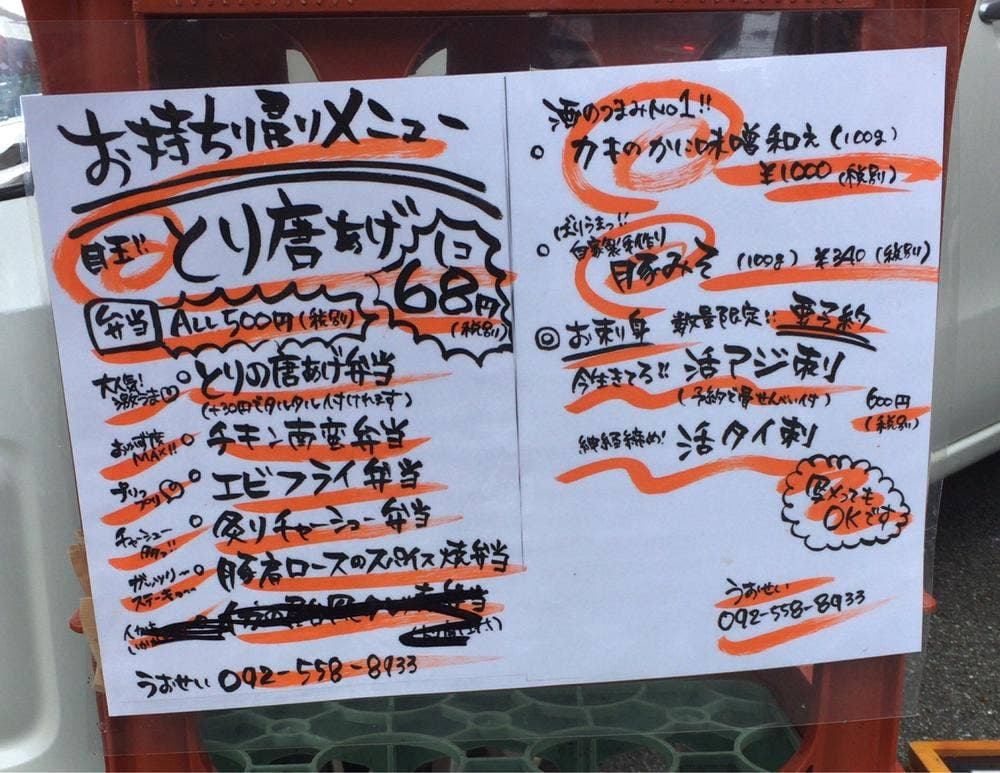 お持ち帰りメニュー
目玉!! とり唐あげ 1コ 68円(税別)
弁当 ALL 500円(税別)
大人気!激うま とりの唐あげ弁当
(+30円でタルタル付けれます)
おかず度MAX!! チキン南蛮弁当
プリップリ エビフライ弁当
チャーシュー 炙りチャーシュー弁当
ガッツリ〜ステーキ 豚肩ロースのスパイス焼弁当
うおせい 092-558-8933
酒のつまみNo1!!
カキのかに味噌和え(100g)
¥1000(税別)
ばりうまっ!!
自家製手作り
豚みそ (100g) ¥340(税別)
お刺り身 数量限定!! 要予約
今生きてる!! 活アジ刺
(予約で骨せんべい付) 600円(税別)
神経締め! 活タイ刺
写メってもOKです
うおせい
092-558-8933